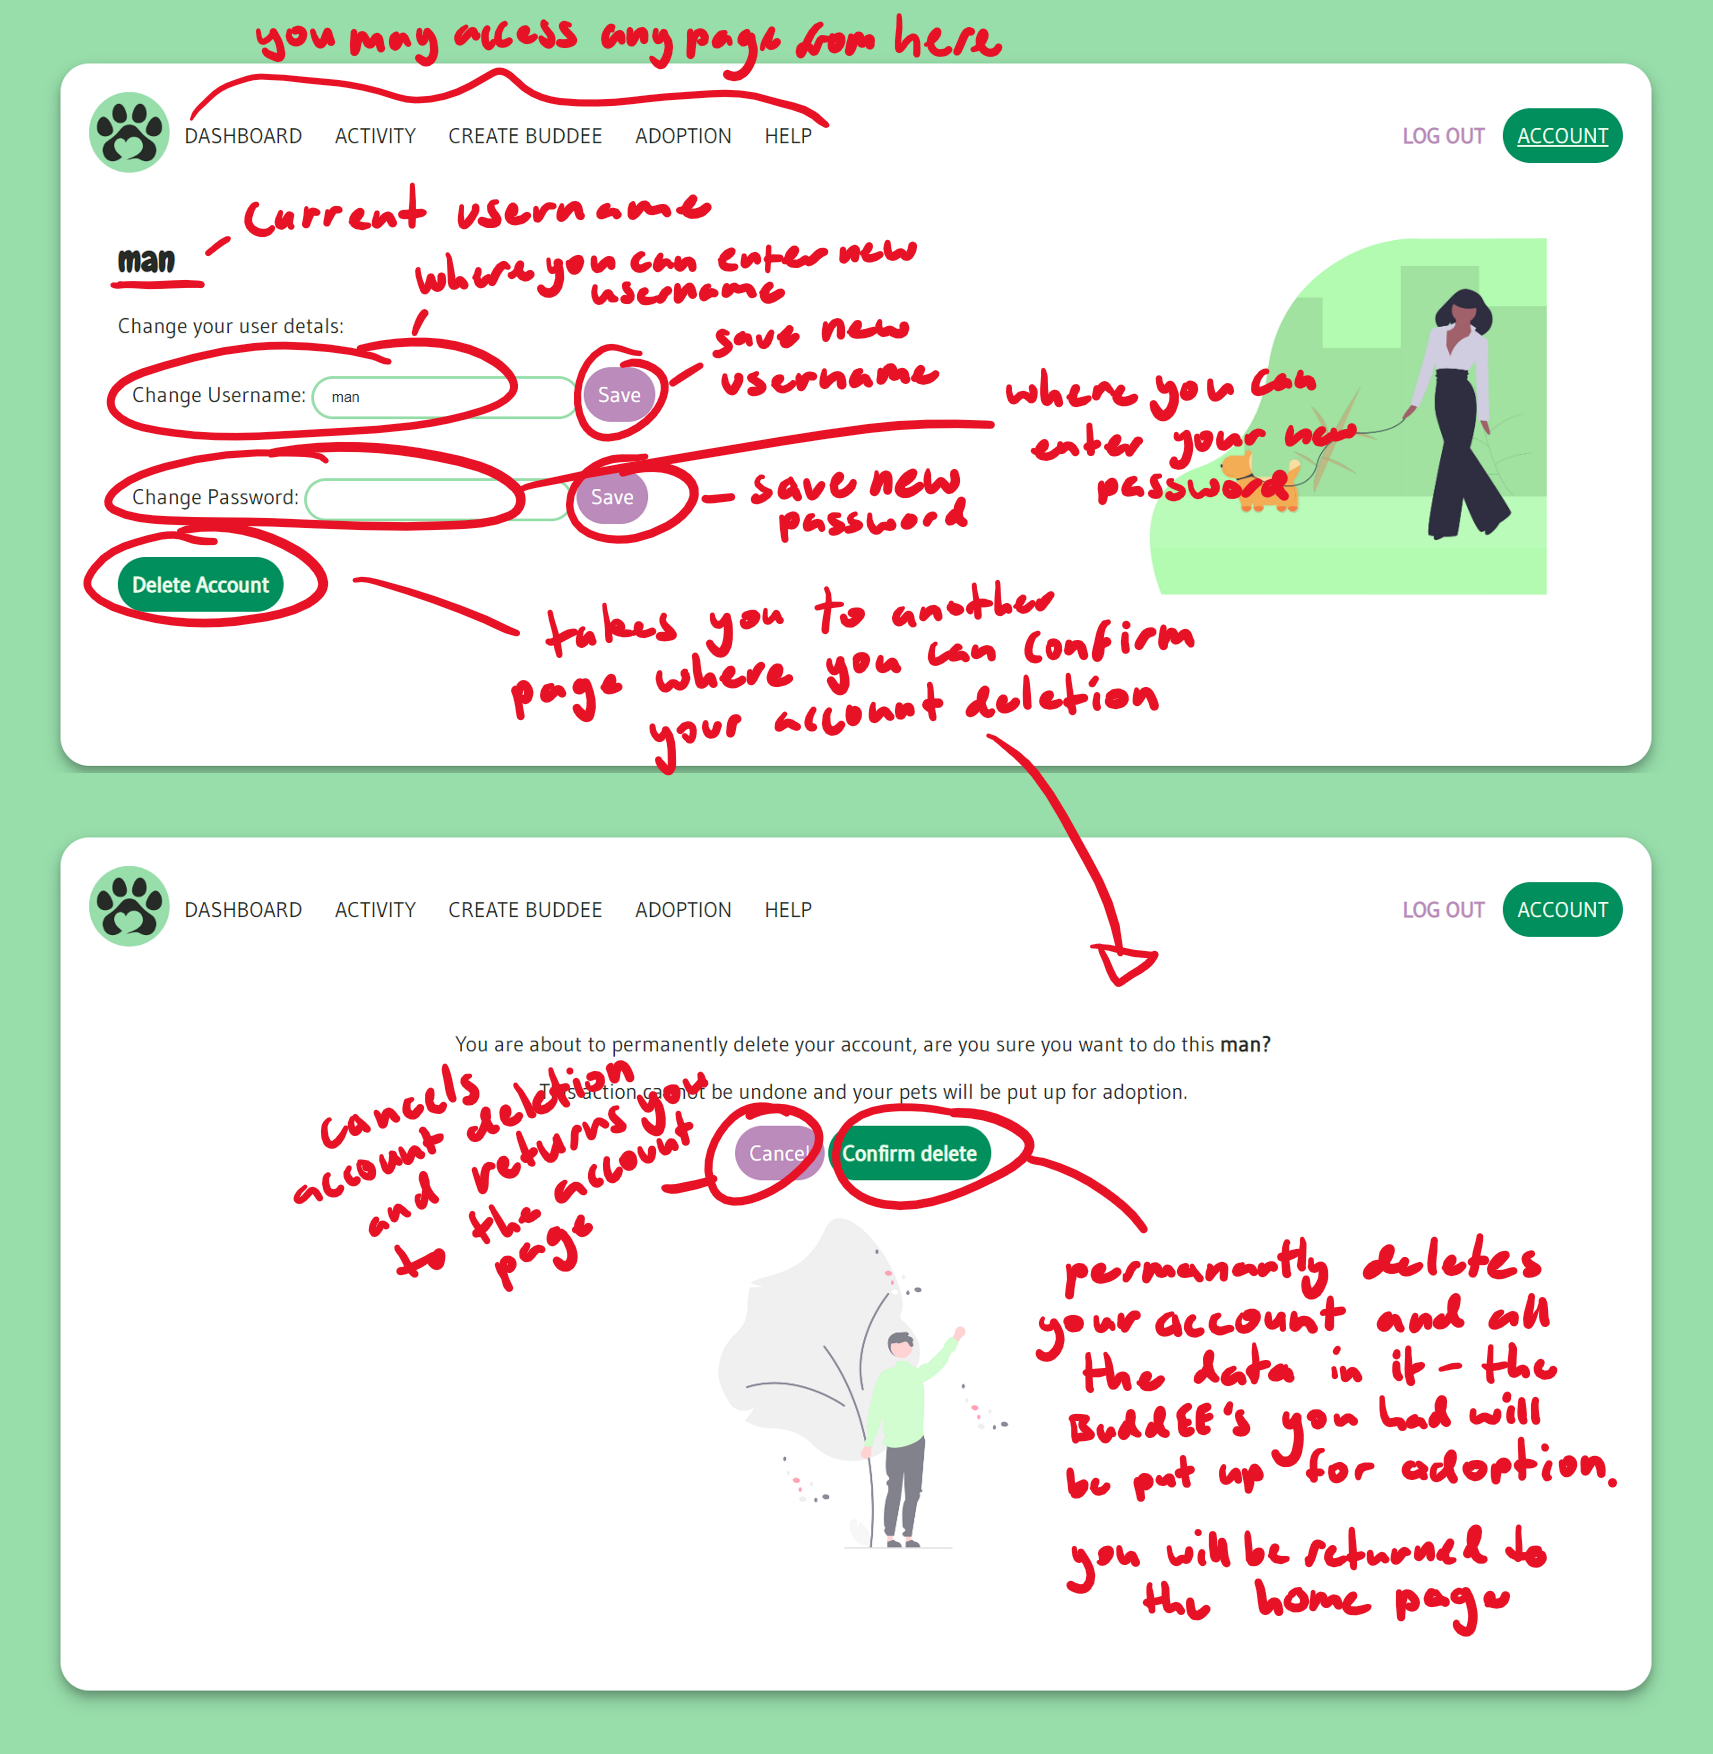 you may access any page from here
DASHBOARD ACTIVITY CREATE BUDDEE ADOPTION HELP LOG OUT ACCOUNT
Current username
man
where you can enter new
username
Change your user detals:
save new
username
Change Username: man Save
where you can
enter your new
password
Change Password: Save
save new
password
Delete Account
takes you to another
page where you can confirm
your account deletion
DASHBOARD ACTIVITY CREATE BUDDEE ADOPTION HELP LOG OUT ACCOUNT
You are about to permanently delete your account, are you sure you want to do this man?
This action cannot be undone and your pets will be put up for adoption.
cancels
account deletion
and returns you
to the account
page
Cancel Confirm delete
permanantly deletes
your account and all
the data in it - the
BuddEE's you had will
be put up for adoption.
you will be returned to
the home page